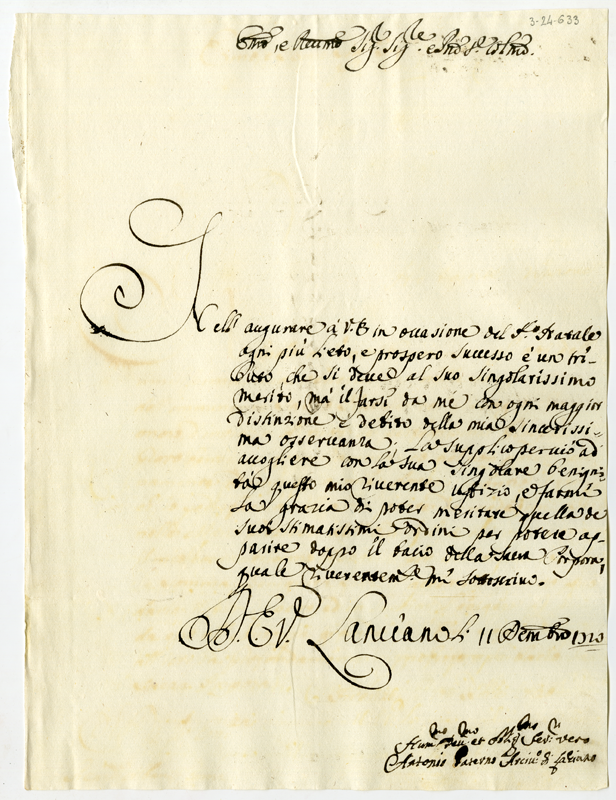 3-24-633
Em̃o, e Reum̃o Sig.r Sig.re e Pñe S.r Colm̃o.
Nell' augurare à V.E. in occasione del S.o Natale
ogni più lieto, e prospero successo è un tri-
buto, che si deve al suo singolarissimo
merito, mà il farsi da me con ogni maggior
distinzione è debito della mia sincerissi-
ma osservanza; La supplico perciò ad
accogliere con la sua singolare benigni-
tà questo mio riverente uffizio, e farmi
la grazia di poter meritare quella de
suoi stimatissimi ordini per potere ap-
parire doppo il bacio della sacra Porpora,
quale riverentem.e mi sottoscrivo.
D. E. V. Lanciano li 11 Dem̃bro
Hum.mo Deu.mo et Obl.mo Ser.r vero
Antonio Paterno Arciu.o di Lanciano